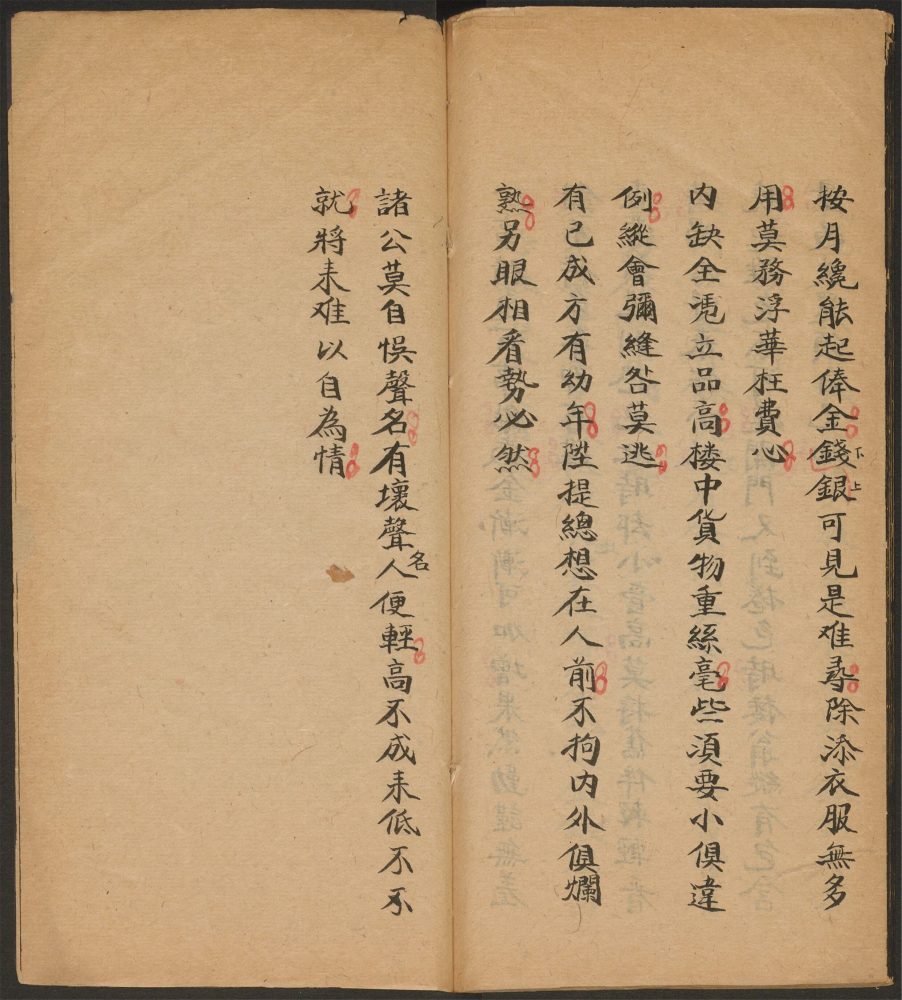 按月纔能起俸金錢下銀上可見是难尋除添衣服無多
用莫務浮華枉費心
内缺全凴立品高楼中貨物重絲毫些須要小俱違
例縱會彌縫咎莫逃
有已成方有幼年陞提總想在人前不拘内外俱爛
熟另眼相看勢必然
諸公莫自悞聲名有壞聲人名便輕高不成来低不不
就將来难以自為情